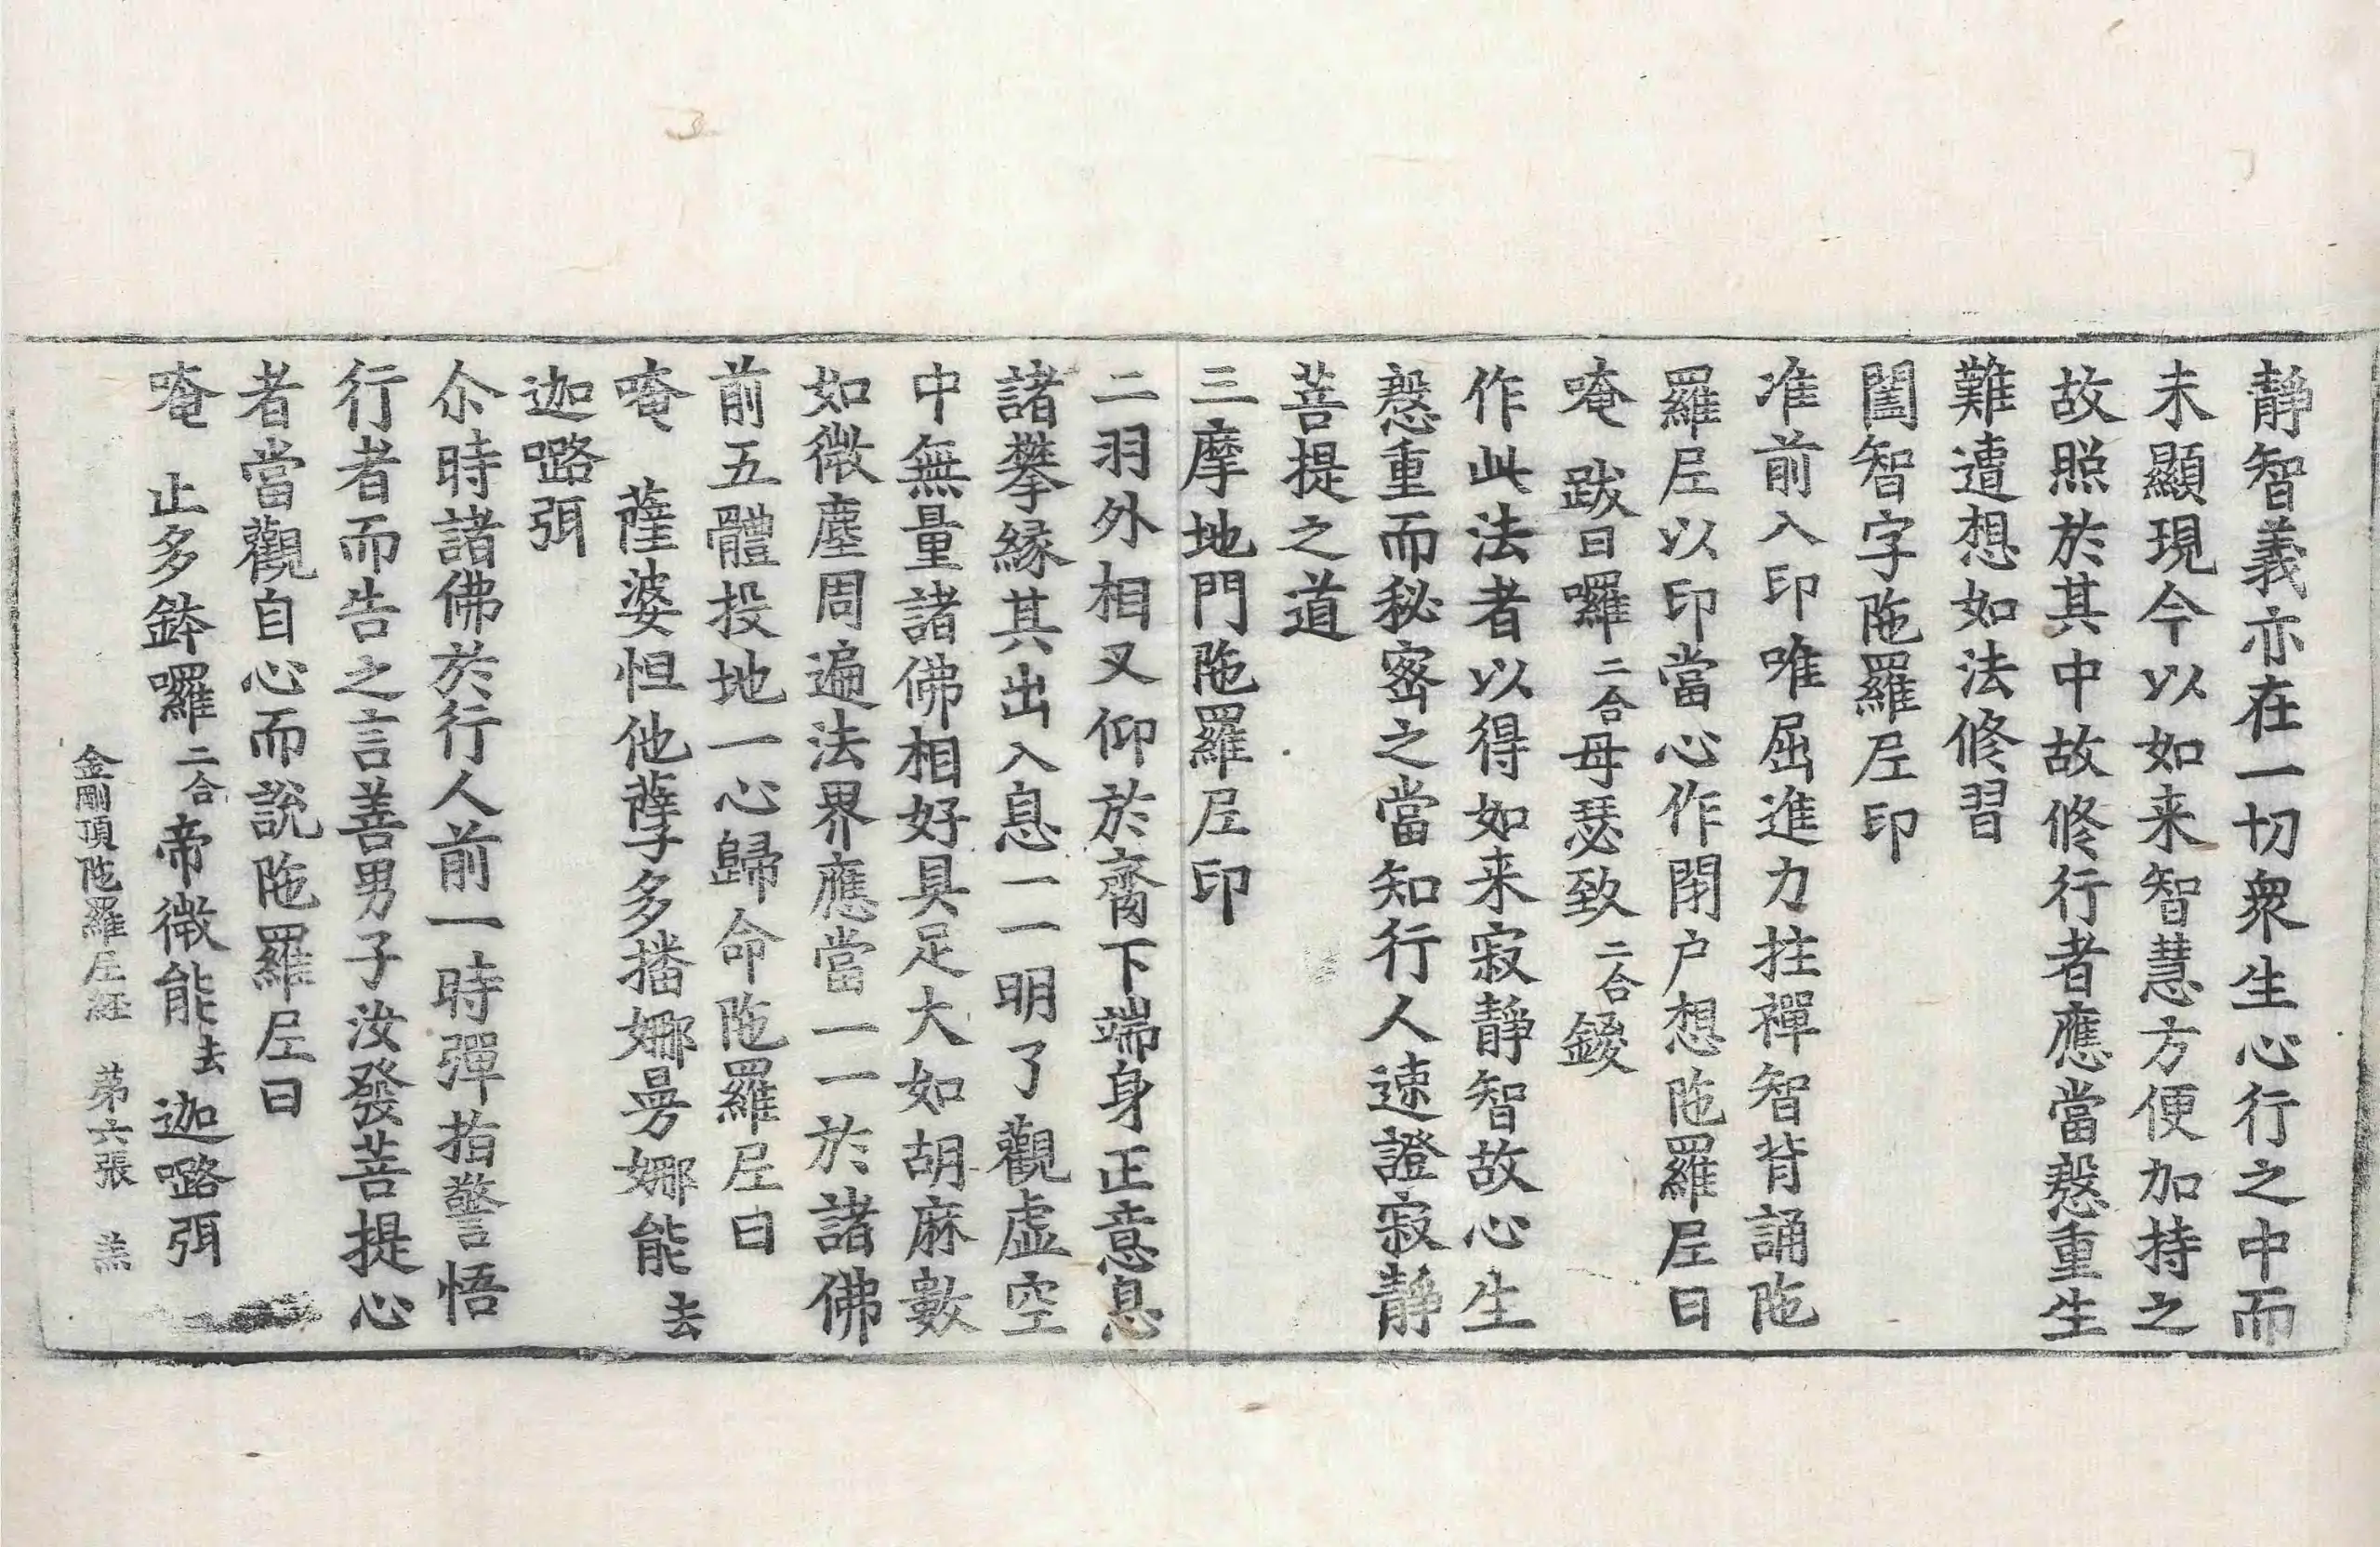 靜智義亦在一切衆生心行之中而
未顯現今以如来智慧方便加持之
故照於其中故修行者應當慇重生
難遭想如法修習
闔智字陁羅𡰱印
准前入印唯屈進力拄禪智背誦陁
羅𡰱以印當心作閉户想陁羅𡰱曰
唵 跋日囉二合母瑟致二合鑁
作此法者以得如来寂靜智故心生
慇重而秘密之當知行人速證寂靜
菩提之道
三摩地門陁羅𡰱印
二羽外相叉仰於齎下端身正意息
諸攀縁其出入息一一明了觀虚空
中無量諸佛相好具足大如胡麻數
如微塵周遍法界應當一一於諸佛
前五體投地一心歸命陁羅𡰱曰
唵 薩婆怛他孽多播娜曼娜能去
迦嚕弭
尒時諸佛於行人前一時彈指警悟
行者而告之言善男子汝發菩提心
者當觀自心而說陁羅𡰱曰
唵 止多鉢囉二合帝微能去 迦嚕弭
金剛頂陁羅𡰱経 苐六張 羔